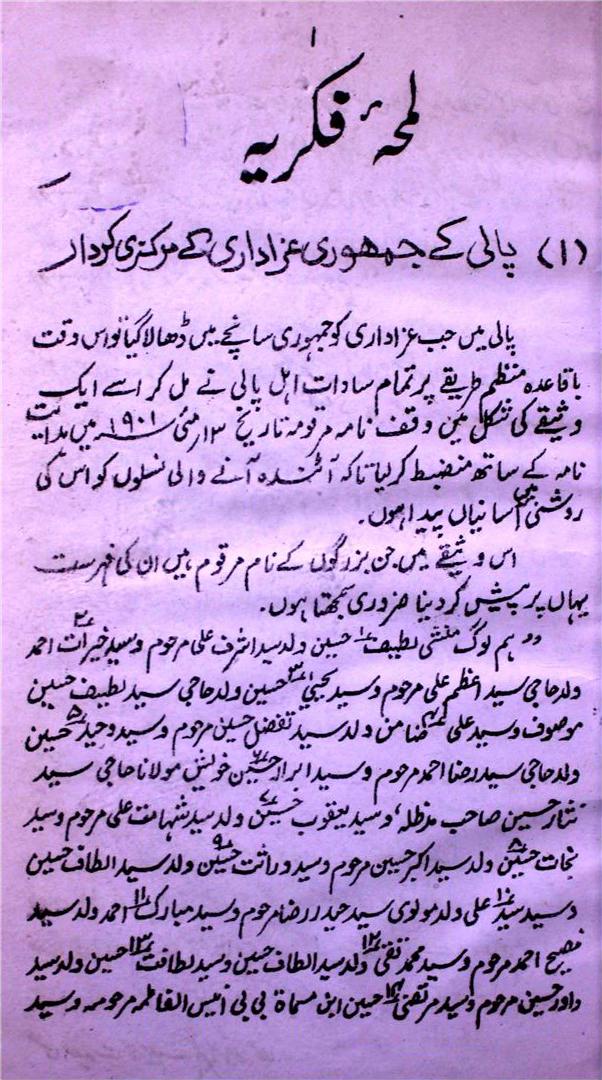 لمحہٴ فکریہ
(۱) پالی کے جمہوری عزاداری کے مرکزی کردار
پالی میں جب عزاداری کو جمہوری سانچے میں ڈھالا گیا تو اس وقت
باقاعدہ منظم طریقے پر تمام سادات اہل پالی نے مل کر اسے ایک
وثیقے کی شکل میں وقف نامہ مرقومہ تاریخ ۱۳ مئی ۱۹۰۱ء میں ہدایت
نامہ کے ساتھ منضبط کر لیا تاکہ آئندہ آنے والی نسلوں کو اس کی
روشنی میں آسانیاں پیدا ہوں۔
اس وثیقے میں جن بزرگوں کے نام مرقوم ہیں ان کی فہرست
یہاں پر پیش کر دینا ضروری سمجھتا ہوں۔
”ہم لوگ منشی لطیف۱ حسین ولد سید اشرف علی مرحوم و سید خیرات۲ احمد
ولد حاجی سید اعظم علی مرحوم و سید یحییٰ۳ حسین ولد حاجی سید لطیف حسین
موصوف و سید علی۴ ضامن ولد سید تفضل حسین مرحوم و سید وحید۵ حسین
ولد حاجی سید رضا احمد مرحوم و سید ابرار۶ حسین خویش مولانا حاجی سید
نثار حسین صاحب مدظلہ، و سید یعقوب۷ حسین ولد سید شہامت علی مرحوم و سید
نجات۸ حسین ولد سید اکبر حسین مرحوم و سید وراثت۹ حسین ولد سید الطاف حسین
و سید سید۱۰ علی ولد مولوی سید حیدر رضا مرحوم و سید مبارک۱۱ احمد ولد سید
فصیح احمد مرحوم و سید محمد تقی۱۲ ولد سید الطاف حسین و سید لطافت۱۳ حسین ولد سید
داور حسین مرحوم و سید مرتضیٰ۱۴ حسین ابن مسماة بی بی انیس الفاطمہ مرحومہ و سید